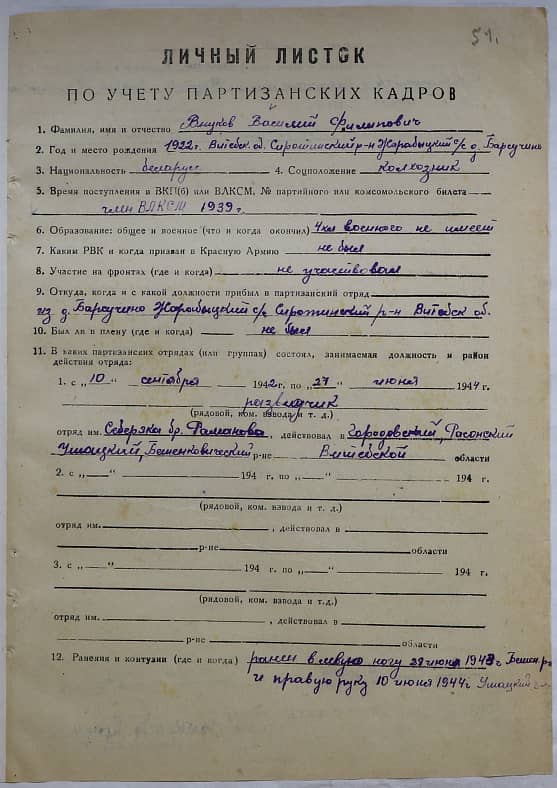 51.
ЛИЧНЫЙ ЛИСТОК
ПО УЧЕТУ ПАРТИЗАНСКИХ КАДРОВ
1. Фамилия, имя и отчество Внуков Василий Филипович
2. Год и место рождения 1922г. Витебск. об. Сиротинский р-н Жарабыцкий с/с д. Барсучино
3. Национальность беларус 4. Соцположение колхозник
5. Время поступления в ВКП(б) или ВЛКСМ, № партийного или комсомольского билета
член ВЛКСМ 1939 г.
6. Образование: общее и военное (что и когда окончил) 4кл военного не имеет
7. Каким РВК и когда призван в Красную Армию не был
8. Участие на фронтах (где и когда) не участвовал
9. Откуда, когда и с какой должности прибыл в партизанский отряд
из д. Барсучино Жарабыцкий с/с Сиротинский р-н Витебск об.
10. Был ли в плену (где и когда) не был
11. В каких партизанских отрядах (или группах) состоял, занимаемая должность и район
действия отряда:
1. с „10“ сентября 1942 г. по „27“ июня 1944 г.
разведчик
(рядовой, ком. взвода и т. д.)
отряд им. бр. действовал в Городовский, Расонский
Ушацкий, Бешенковический р-не Витебской области
2. с „—“ 194 г. по „—“ 194 г.
(рядовой, ком. взвода и т. д.)
отряд им. , действовал в
р-не области
3. с „—“ 194 г. по „—“ 194 г.
(рядовой, ком. взвода и т.д.)
отряд им. , действовал в
р-не области
12. Ранения и контузии (где и когда) ранен в левую ногу июня 1943 г Бешен. р
и правую руку 10 июня 1944г Ушацкий